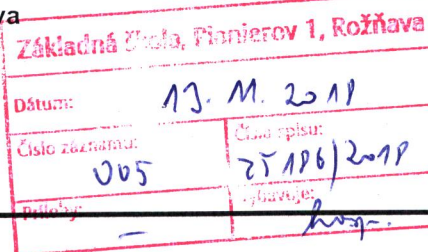 va
Základná škola, Pionierov 1, Rožňava
Dátum: 13. 11. 2018
Číslo záznamu: Číslo spisu:
005
Prílohy: Vybavuje:
–